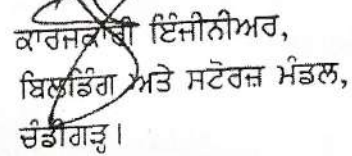 ਕਾਰਜਕਾਰੀ ਇੰਜੀਨੀਅਰ,
ਬਿਲਡਿੰਗ ਅਤੇ ਸਟੋਰਜ਼ ਮੰਡਲ,
ਚੰਡੀਗੜ੍ਹ।